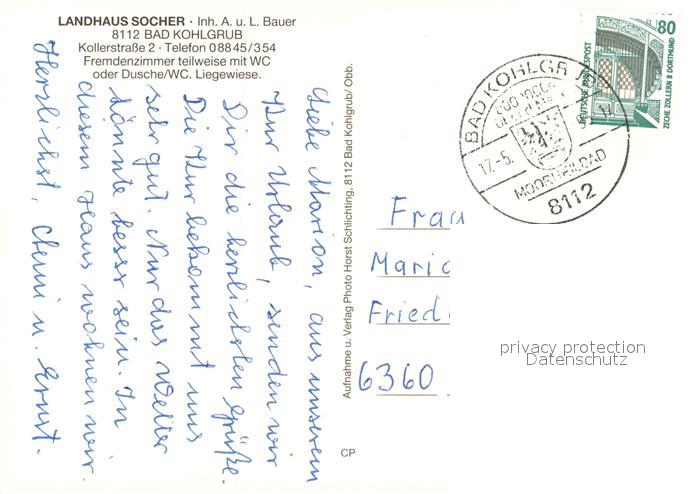 LANDHAUS SOCHER · Inh. A. u. L. Bauer
8112 BAD KOHLGRUB
Kollerstraße 2 · Telefon 08845/354
Fremdenzimmer teilweise mit WC
oder Dusche/WC. Liegewiese.
Liebe Marion, aus unserem
Kur Urlaub, senden wir
Dir die herzlichsten Grüße.
Die Kur bekommt uns
sehr gut. Nur das Wetter
könnte besser sein. In
diesem Haus wohnen wir.
Herzlichst, u. Ernst.
Aufnahme u. Verlag Photo Horst Schlichting, 8112 Bad Kohlgrub/Obb.
CP
80
DEUTSCHE BUNDESPOST
ZECHE ZOLLERN II DORTMUND
BAD KOHLGR
17.-5.
MOORHEILBAD
8112
Frau
Mario
Friedi
6360
privacy protection
Datenschutz